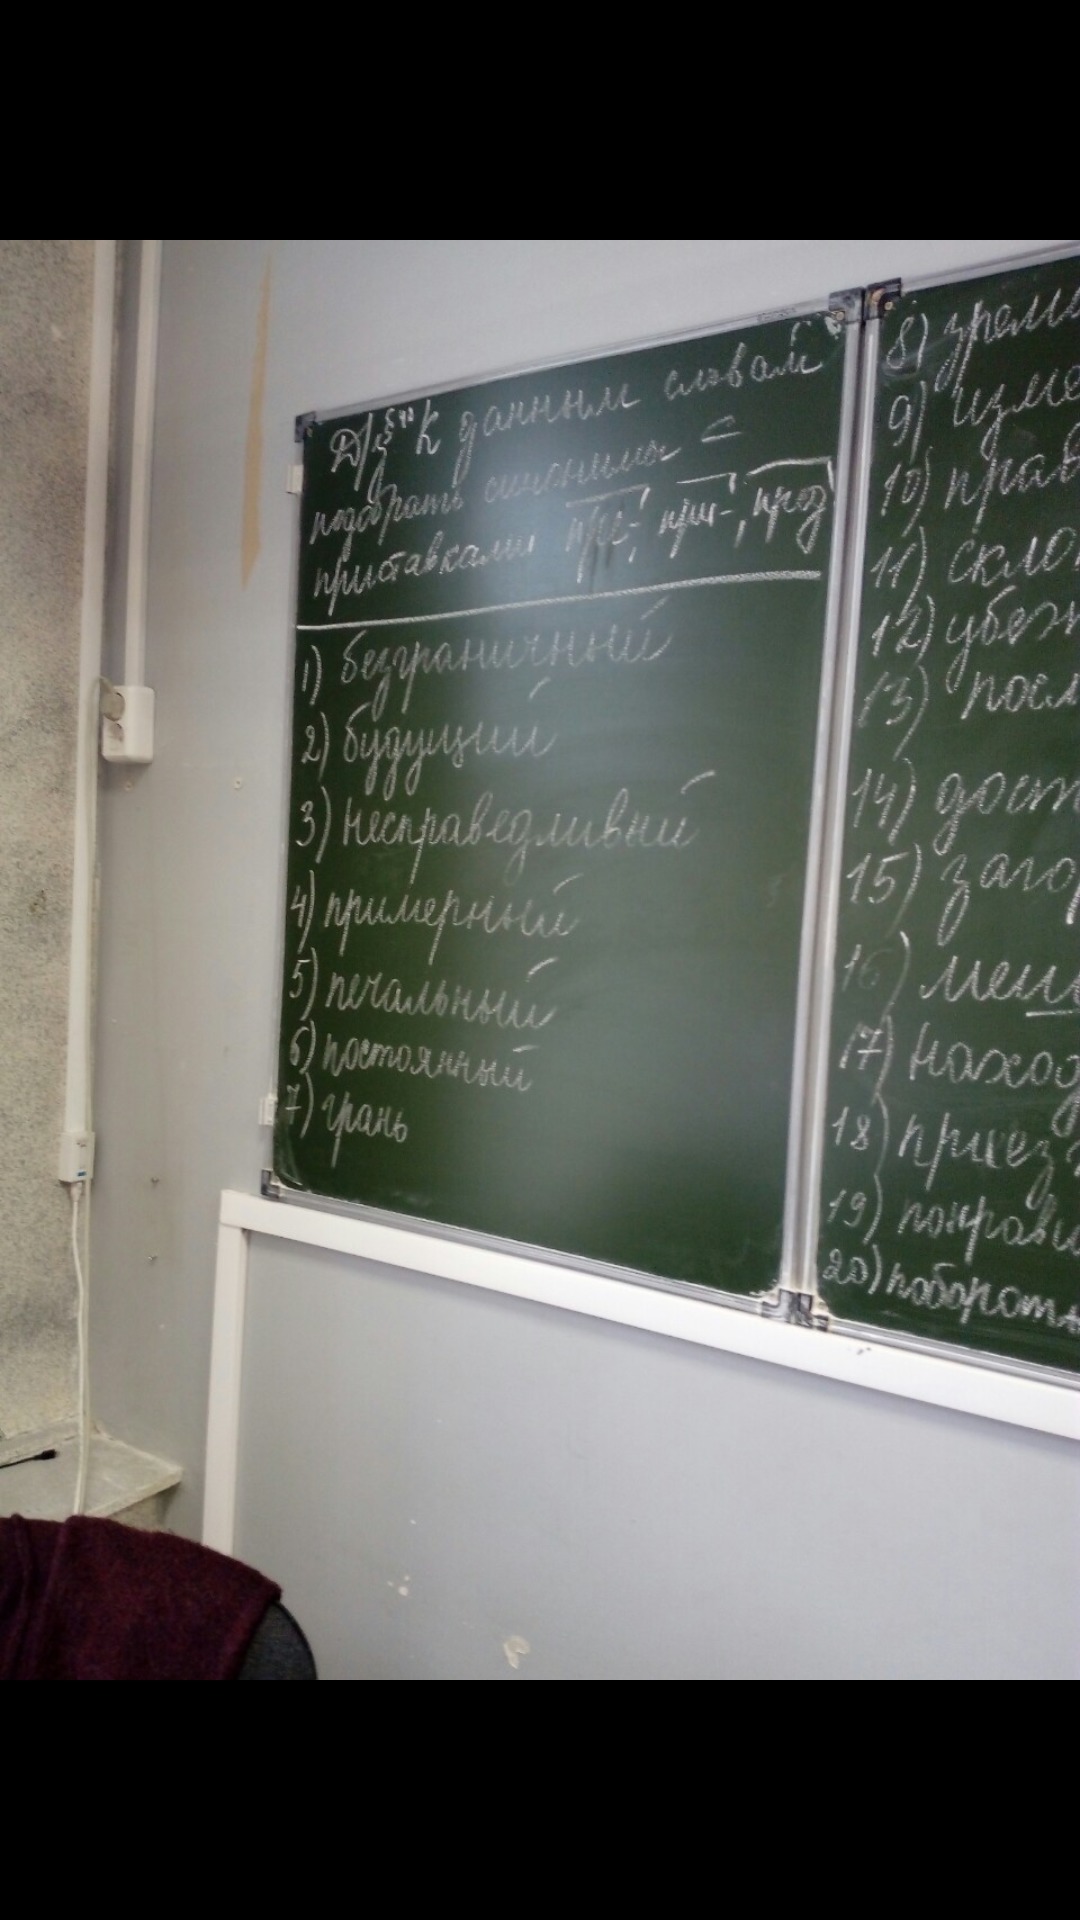 Д/з §" К данным словам
подобрать синонимы с
приставками пре-, при-, пред
1) безграничный
2) будущий
3) несправедливый
4) примерный
5) печальный
6) постоянный
7) грань
8) зрели
9) изме
10) прав
11) скло
12) убеж
13) посл
14) дост
15) заго
16) мень
17) наход
18) приез
19) понрави
20) побороть